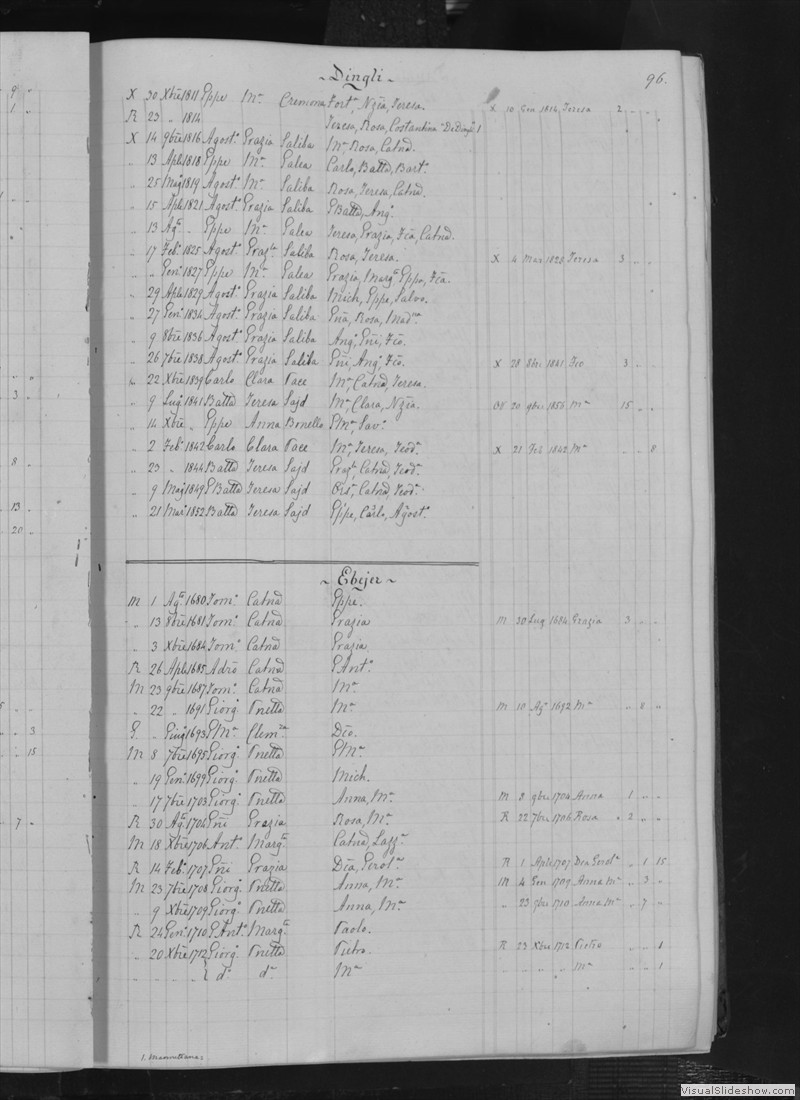 ~ Dingli ~ 96.
X 30 Xbre 1811 Gppe Mª Cremona Fort, Nzia, Teresa. X 10 Gen 1812 Teresa 2 " "
R 23 " 1814 Teresa, Rosa, Costantina "De Dingli" 1
X 14 9bre 1816 Agost° Grazia Saliba Mª, Rosa, Catnd.
" 13 Aple 1818 Gppe Mª Galea Carlo, Batta, Bart°
" 25 Mag 1819 Agost° Mª Saliba Rosa, Teresa, Catnd.
" 15 Aple 1821 Agost° Grazia Saliba GBatta, Ang°.
" 13 Ag° " Gppe Mª Galea Teresa, Grazia, Fca, Catnd.
" 17 Feb° 1825 Agost° Graz Saliba Rosa, Teresa. X 4 Mar 1828 Teresa 3 " "
" " Gen° 1827 Gppe Mª Galea Grazia, Marg, Gppa, Fca.
" 29 Aple 1829 Agost° Grazia Saliba Mich, Gppe, Salvo.
" 27 Gen° 1834 Agost° Grazia Saliba Gna, Rosa, Mad
" 9 8bre 1836 Agost° Grazia Saliba Ang°, Gni, Fco.
" 26 7bre 1838 Agost° Grazia Saliba Gni, Ang°, Fco. X 28 8bre 1841 Fco 3 " "
" 22 Xbre 1839 Carlo Clara Pace Mª, Catnd, Teresa.
" 9 Lug° 1841 Batta Teresa Sajd Mª, Clara, Nzia. 20 9bre 1856 Mª 15 " "
" 14 Xbre " Gppe Anna Bonello GMª, Sav°.
" 2 Feb° 1842 Carlo Clara Pace Mª, Teresa, Teod X 21 Feb 1842 Mª " " 8
" 23 " 1844 Batta Teresa Sajd Graz, Catnd, Teod
" 9 Mag° 1849 GBatta Teresa Sajd Ors, Catnd, Teod
" 21 Mar° 1852 Batta Teresa Sajd Gppe, Carlo, Agost°.
~ Ebejer ~
M 1 Ag° 1680 Tom° Catnd Gppe.
" 13 8bre 1681 Tom° Catnd Grazia M 30 Lug 1684 Grazia 3 " "
" 3 Xbre 1684 Tom° Catnd Grazia
R 26 Aple 1685 Adrio Catnd GAnt°
M 23 9bre 1687 Tom° Catnd Mª
" 22 " 1691 Giorg° Vnetta Mª M 10 Ag° 1692 Mª " 8 "
G. " Giug° 1693 GMª Clem Dco.
M 8 7bre 1695 Giorg° Vnetta GMª
" 19 Gen° 1699 Giorg° Vnetta Mich.
" 17 7bre 1703 Giorg° Vnetta Anna, Mª M 8 9bre 1704 Anna 1 " "
R 30 Ag° 1704 Gni Grazia Rosa, Mª R 22 7bre 1706 Rosa 2 " "
M 18 Xbre 1706 Ant° Marg Catnd, Lazz
R 14 Feb° 1707 Gni Grazia Dca, Gerol R 1 Aple 1707 Dca Gerol " 1 15
M 23 7bre 1708 Giorg° Vnetta Anna, Mª M 4 Gen 1709 Anna Mª " 3 "
" 9 Xbre 1709 Giorg° Vnetta Anna, Mª " 23 1710 Anna Mª " 7 "
R 24 Gen° 1710 GAnt° Marg Paolo.
" 20 Xbre 1712 Giorg° Vnetta Pietro. R 23 Xbre 1712 Pietro " " 1
" " " " d° d° Mª " " " " Mª " " 1
VisualSlideshow.com